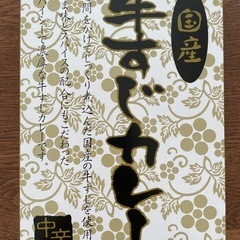 国産
牛すじカレー
間をかけてじっくり煮込んだ国産の牛すじを使用
味とスパイスの配合にもこだわった
濃厚な牛すじカレーです。
中辛